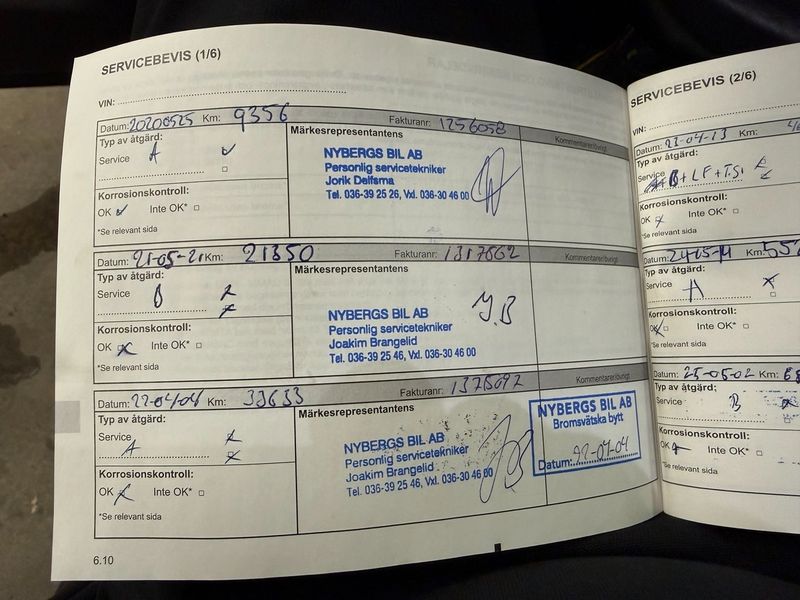 SERVICEBEVIS (1/6)
VIN:
Datum: 20200525 Km: 9356 Fakturanr: 1256058
Typ av åtgärd: Märkesrepresentantens Kommentarer/övrigt
Service A
NYBERGS BIL AB
Personlig servicetekniker
Jorik Delfsma
Tel. 036-39 25 26, Vxl. 036-30 46 00
Korrosionskontroll:
OK Inte OK*
*Se relevant sida
Datum: 21-05-21 Km: 21350 Fakturanr: 1317662
Typ av åtgärd: Märkesrepresentantens Kommentarer/övrigt
Service B
NYBERGS BIL AB
Personlig servicetekniker
Joakim Brangelid
Tel. 036-39 25 46, Vxl. 036-30 46 00
J.B
Korrosionskontroll:
OK Inte OK*
*Se relevant sida
Datum: 22-04-04 Km: 33633 Fakturanr: 1375692
Typ av åtgärd: Märkesrepresentantens Kommentarer/övrigt
Service A
NYBERGS BIL AB
Personlig servicetekniker
Joakim Brangelid
Tel. 036-39 25 46, Vxl. 036-30 46 00
NYBERGS BIL AB
Bromsvätska bytt
Datum: 22-04-04
Korrosionskontroll:
OK Inte OK*
*Se relevant sida
6.10
SERVICEBEVIS (2/6)
VIN:
Datum: 23-04-13 Km:
Typ av åtgärd:
Service B + LF + T.S.
Korrosionskontroll:
OK Inte OK*
*Se relevant sida
Datum: 24-05-14 Km: 557
Typ av åtgärd:
Service A
Korrosionskontroll:
OK Inte OK*
*Se relevant sida
Datum: 25-05-02 Km:
Typ av åtgärd:
Service B
Korrosionskontroll:
OK Inte OK*
*Se relevant sida